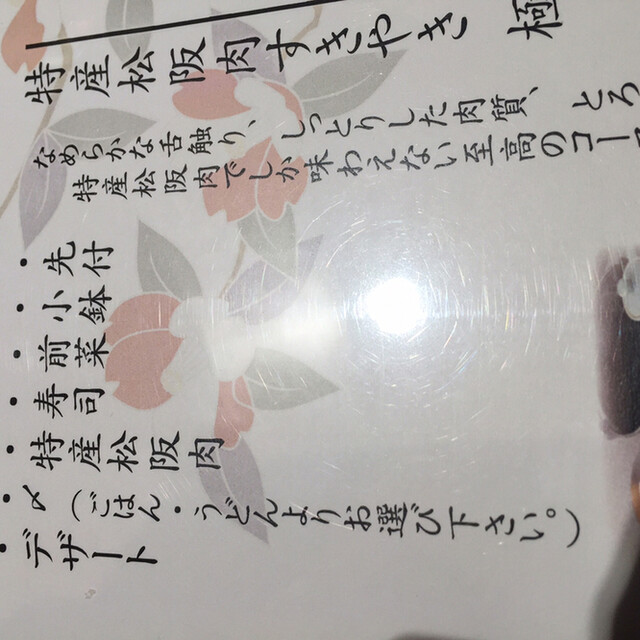 特産松阪肉すきやき 極
なめらかな舌触り、しっとりした肉質、とろ
特産松阪肉でしか味わえない至高のコー
・先付
・小鉢
・前菜
・寿司
・特産松阪肉
・〆(ごはん・うどんよりお選び下さい。)
・デザート